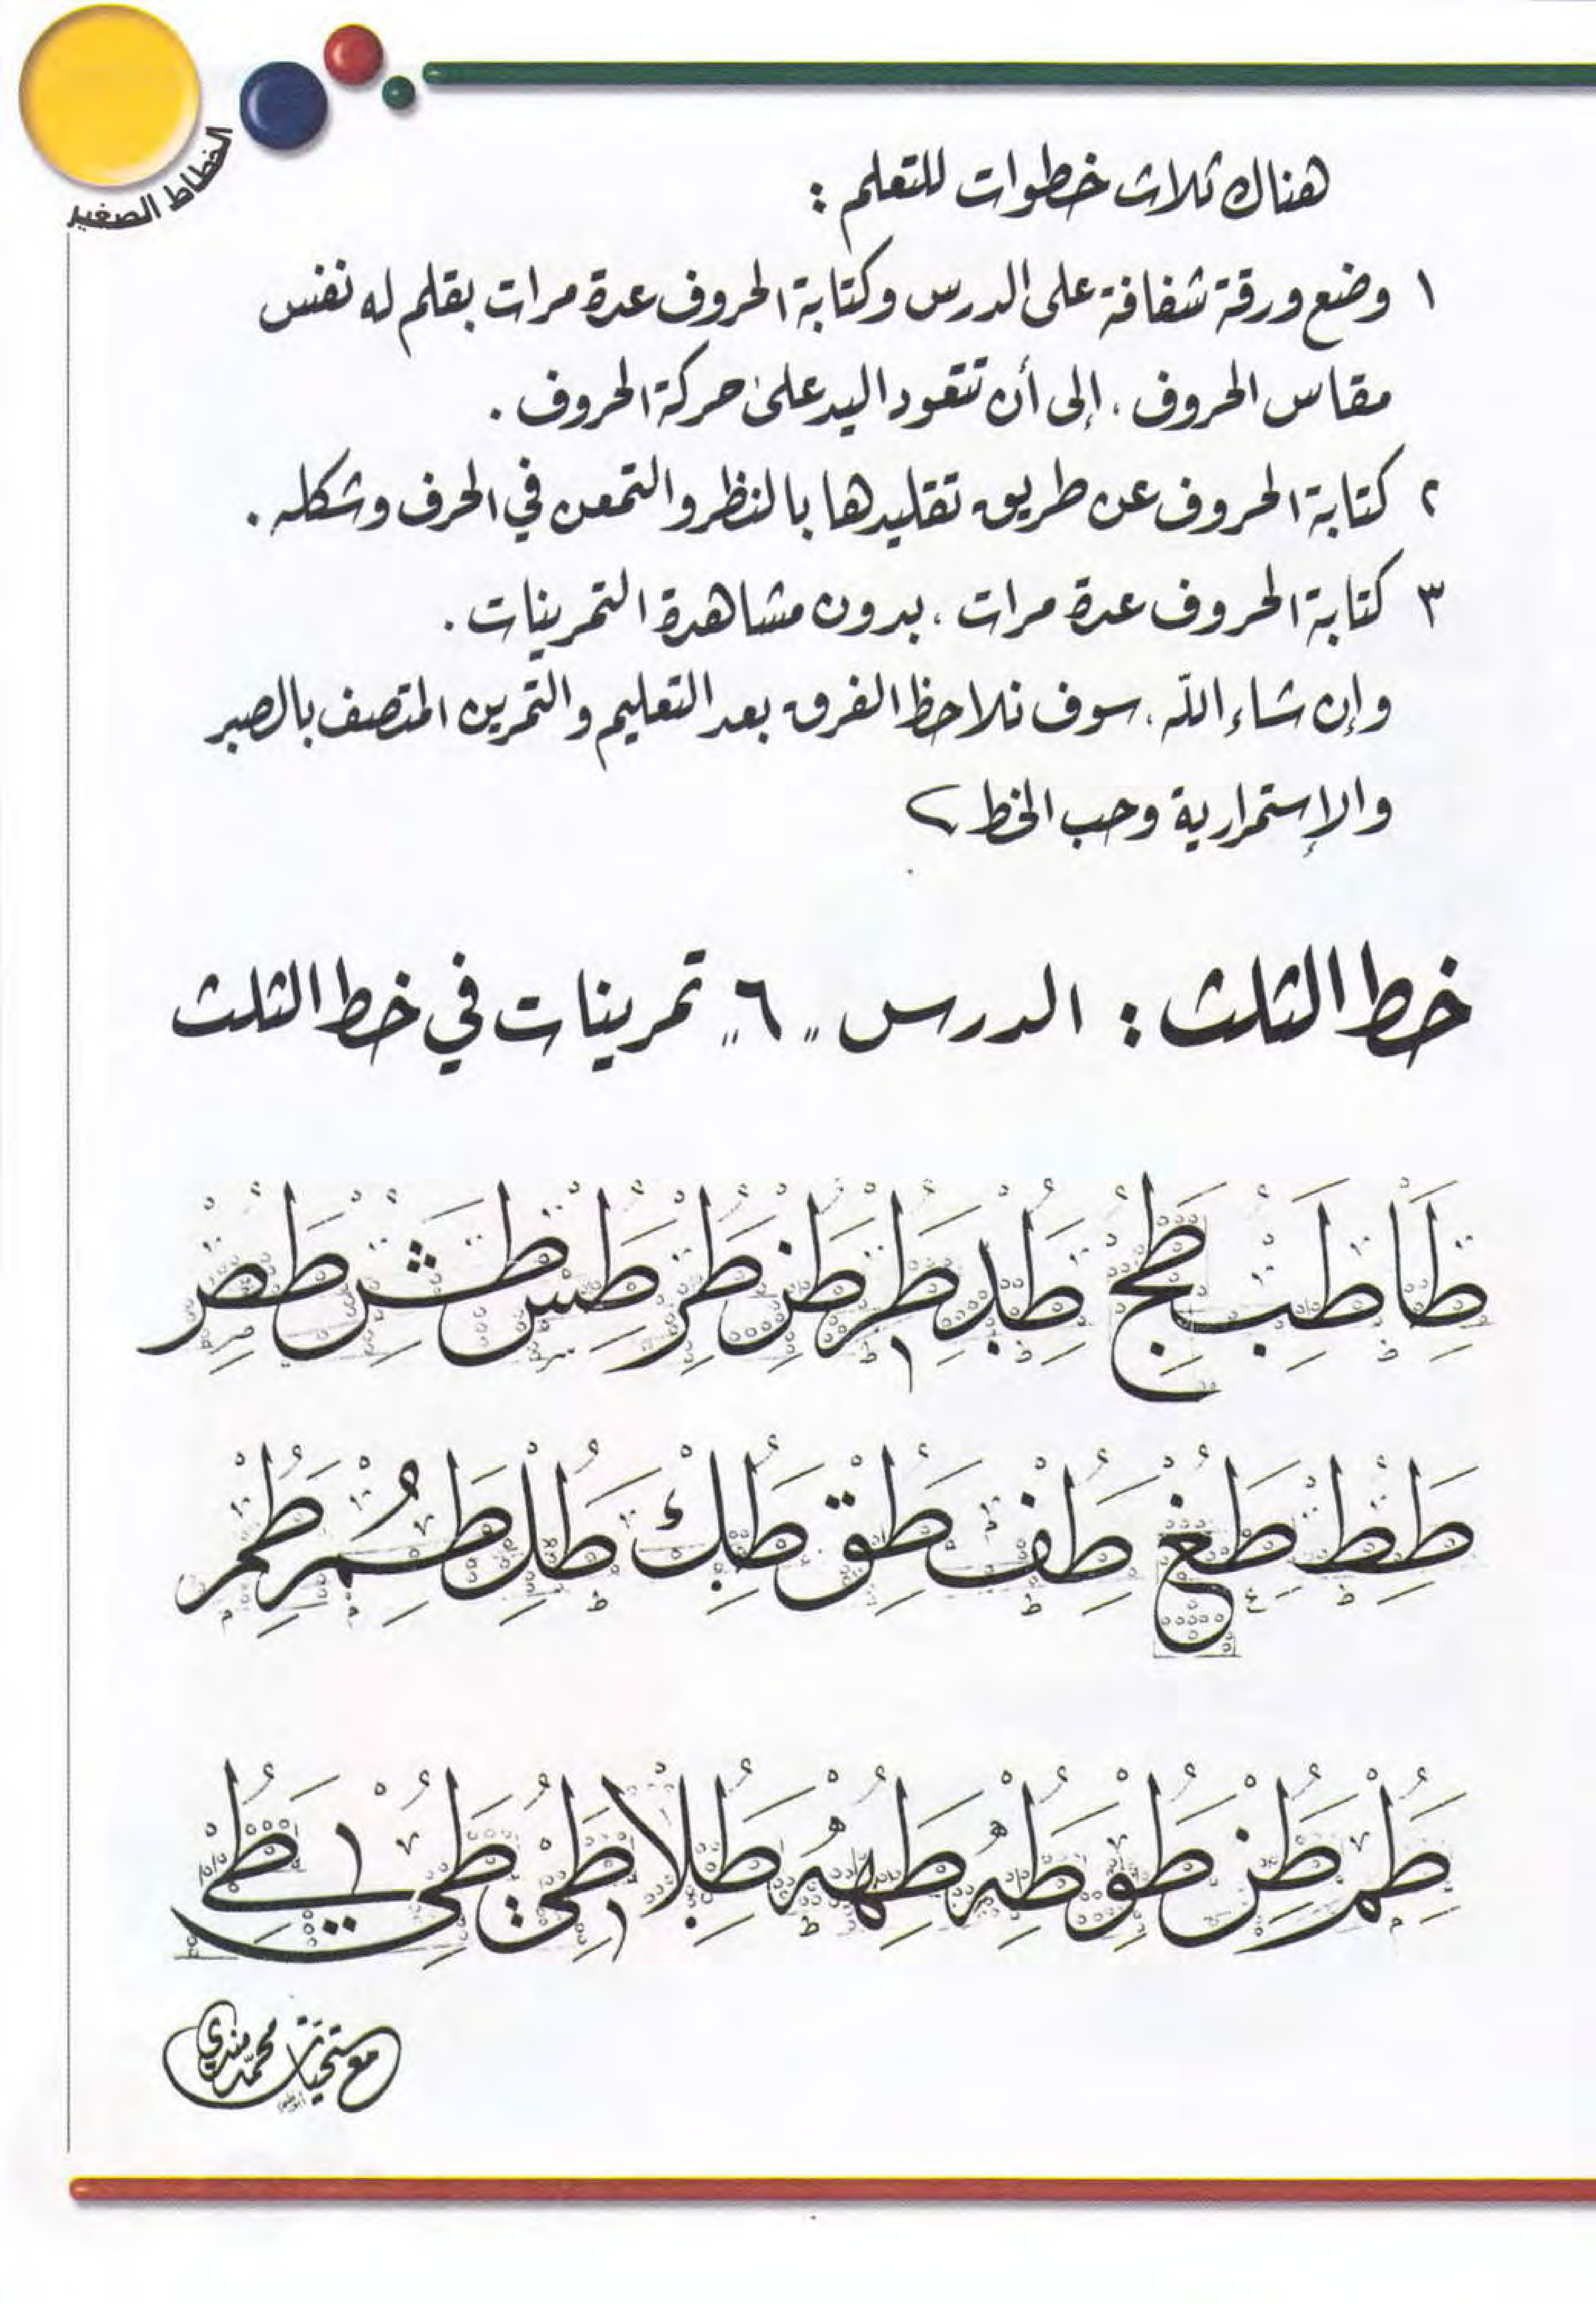 الخطاط الصغير
هناك ثلاث خطوات للتعلم :
١ وضع ورقة شفافة على الدرس وكتابة الحروف عدة مرات بقلم له نفس
مقاس الحروف ، إلى أن تتعود اليد على حركة الحروف .
٢ كتابة الحروف عن طريق تقليدها بالنظر والتمعن في الحرف وشكله .
٣ كتابة الحروف عدة مرات ، بدون مشاهدة التمرينات .
وإن شاء الله ، سوف نلاحظ الفرق بعد التعليم والتمرين المتصف بالصبر
والإستمرارية وحب الخط
خط الثلث : الدرس "٦" تمرينات في خط الثلث
طا طب طج طد طر طز طر طس طش طص
طط طغ طف طق طك طل طم طم
طم طن طو طه طهه طلا طي طي طے
مع تحيات محمد مندي